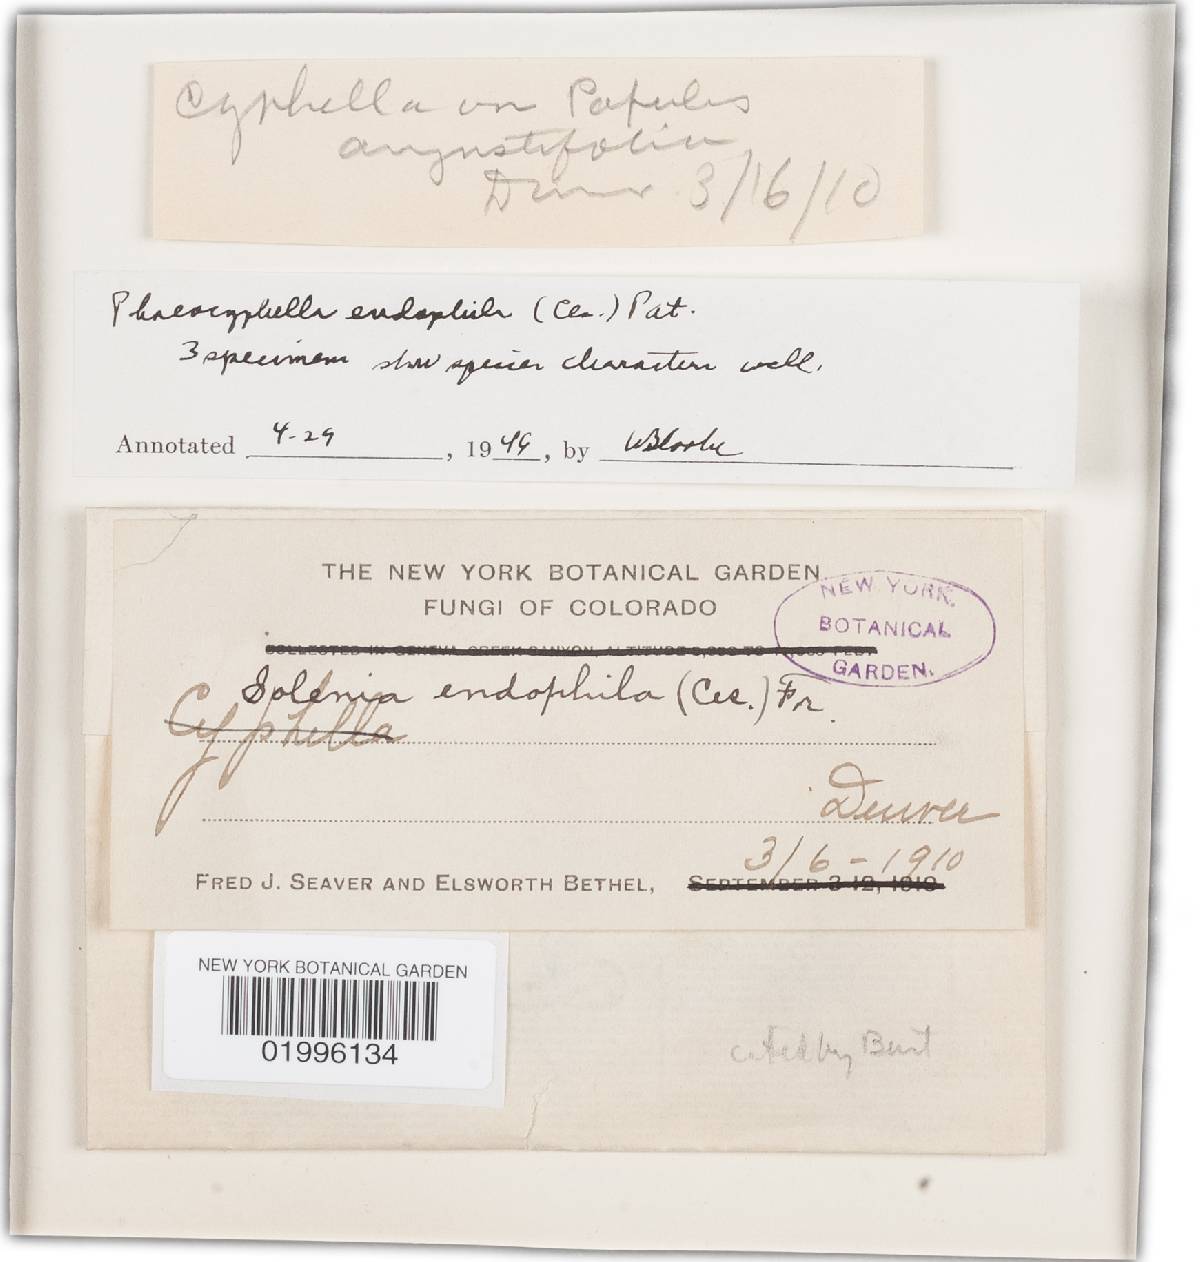 Cyphella on Populus
angustifolia
Denver 3/16/10
Phaeocyphella endophila (Ces.) Pat.
3 specimens show species characters well.
Annotated 4-29, 1949, by WBCooke
THE NEW YORK BOTANICAL GARDEN
FUNGI OF COLORADO
NEW YORK
BOTANICAL
GARDEN.
COLLECTED IN GENEVA CREEK CANYON, ALTITUDE
Solenia endophila (Ces.) Fr.
Cyphella
Denver
3/6-1910
FRED J. SEAVER AND ELSWORTH BETHEL, SEPTEMBER 3-12, 1910
NEW YORK BOTANICAL GARDEN
01996134
cited by Burt